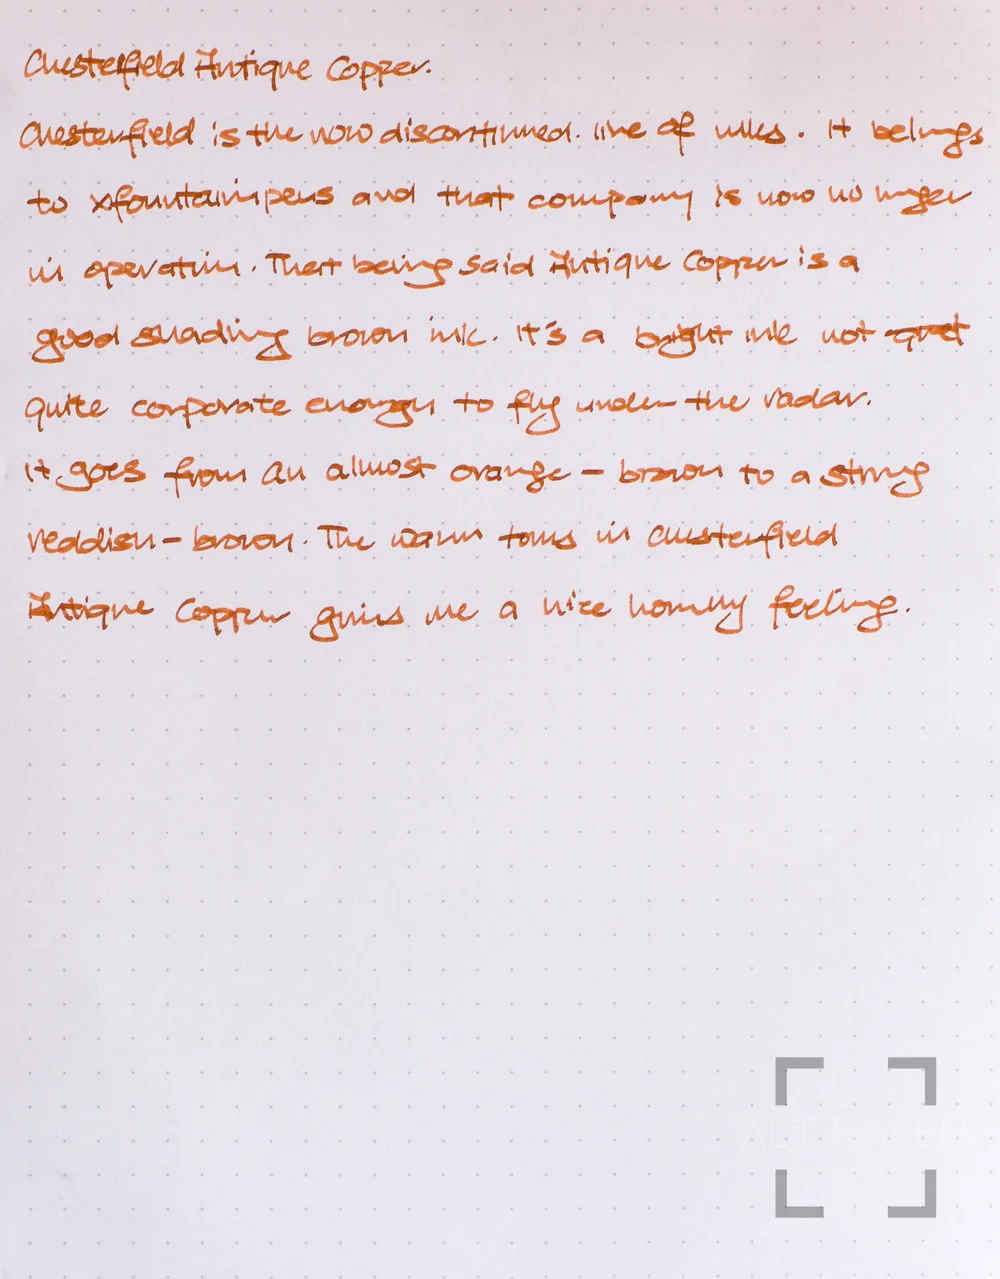 Chesterfield Antique Copper.
Chesterfield is the now discontinued line of inks. It belongs
to xfountainpens and that company is now no longer
in operation. That being said Antique Copper is a
good shading brown ink. It's a bright ink not
quite corporate enough to fly under the radar.
It goes from an almost orange-brown to a strong
reddish-brown. The warm tones in Chesterfield
Antique Copper gives me a nice homely feeling.
ALT. HAVEN